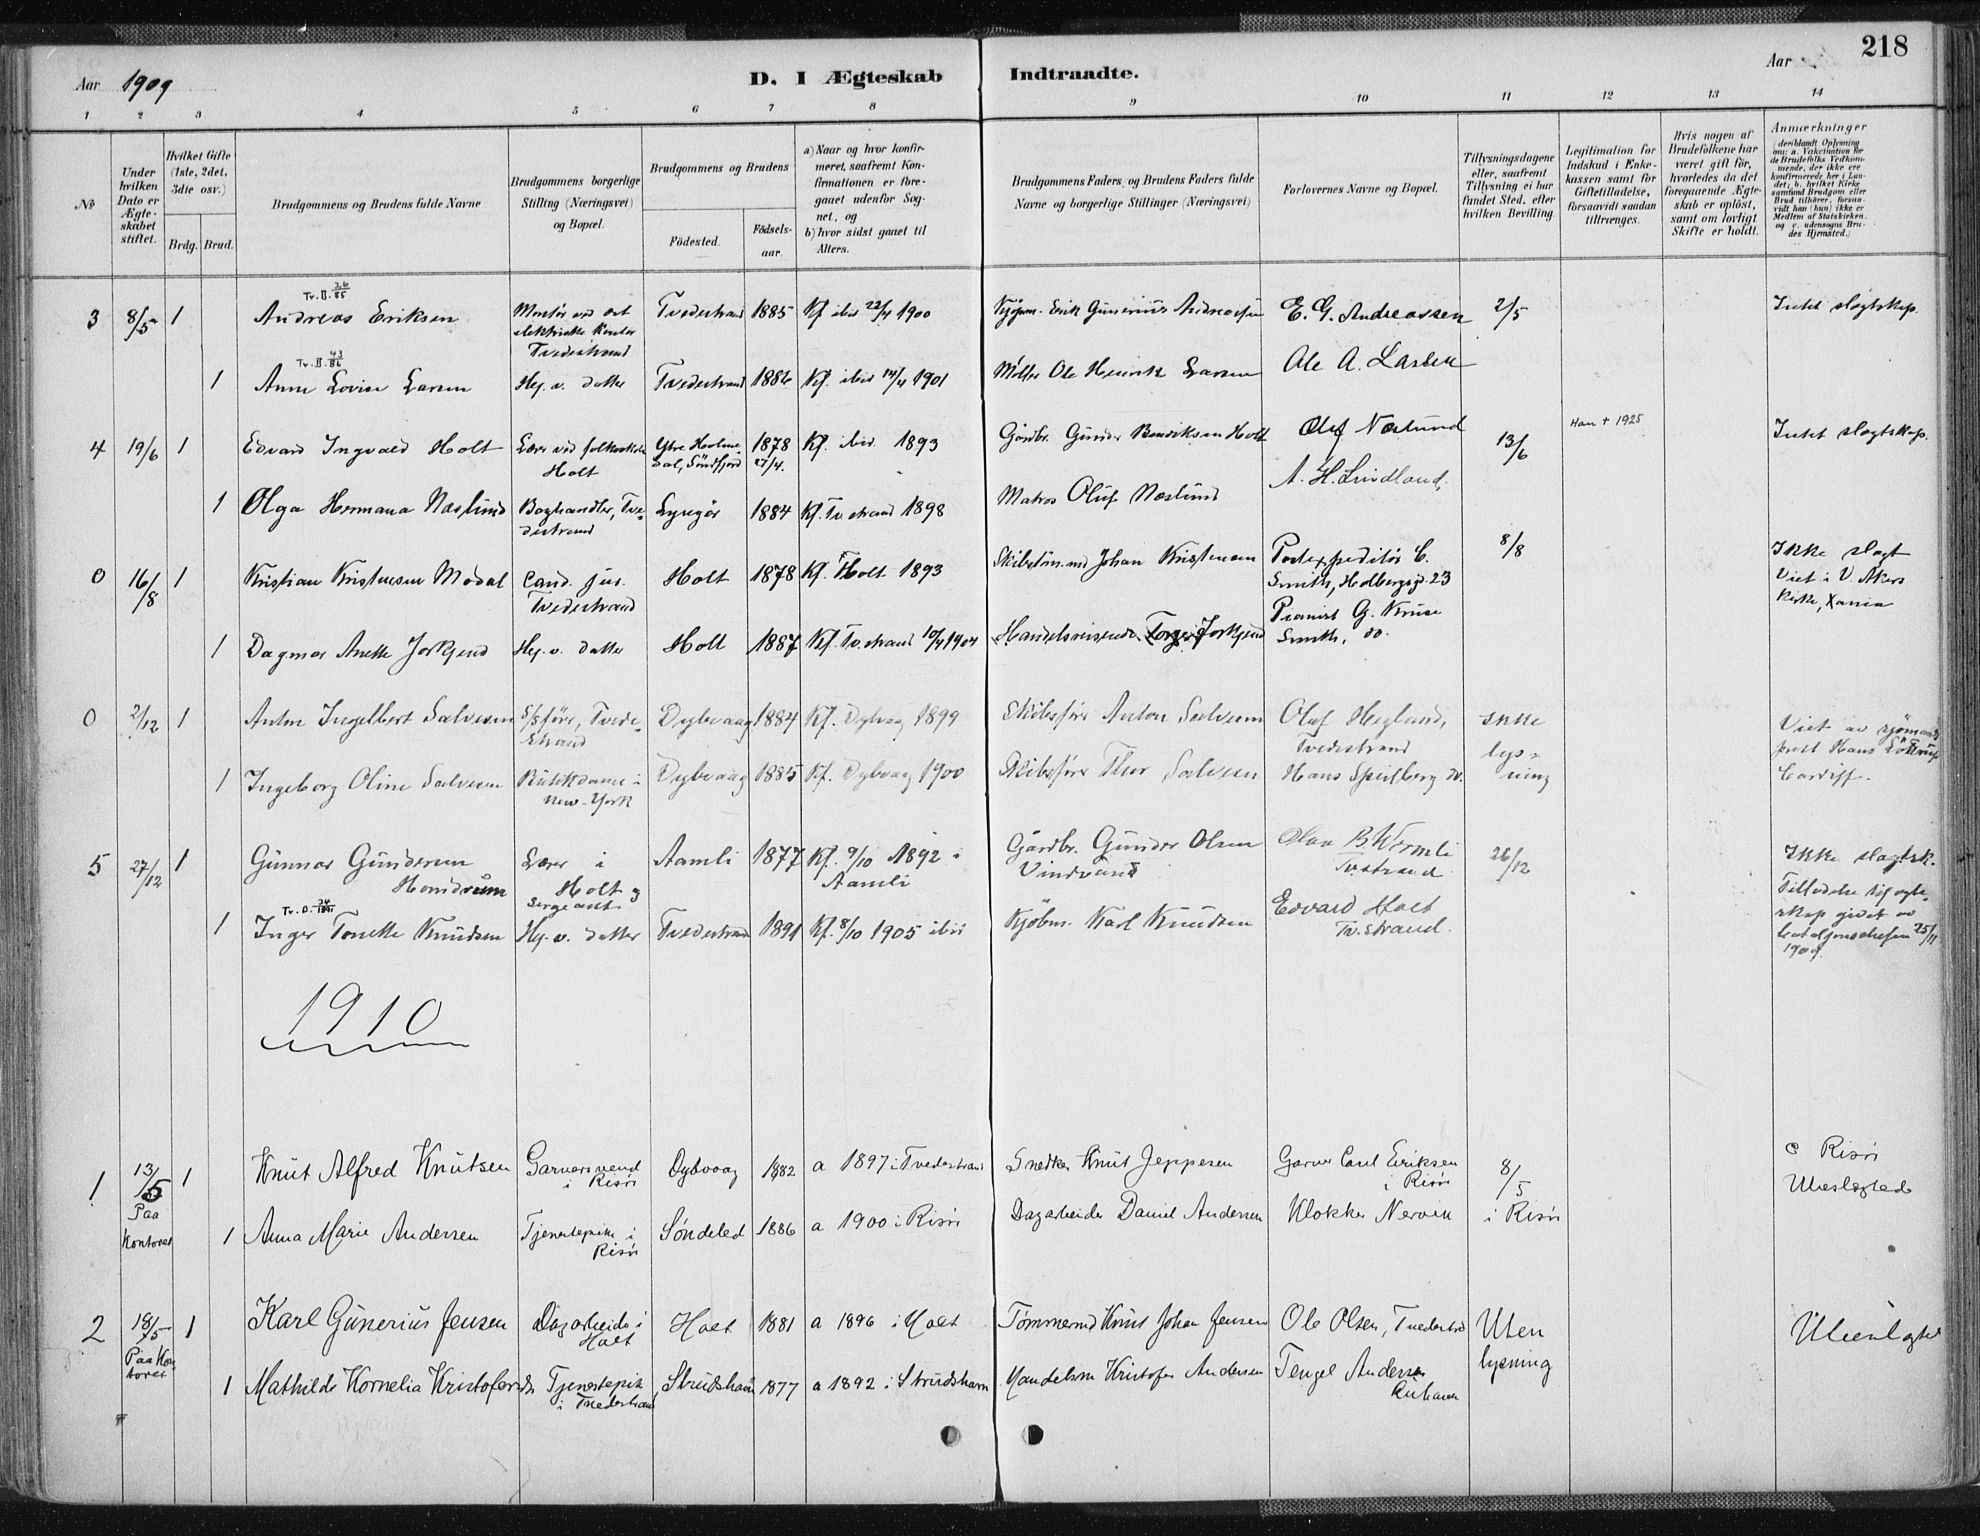 218
Aar 1909
D. I Ægteskab Indtraadte.
Aar
1 2 3 4 5 6 7 8 9 10 11 12 13 14
No
Under hvilken Dato er Ægteskabet stiftet.
Hvilket Gifte (1ste, 2det, 3die osv.)
Brdg. Brud.
Brudgommens og Brudens fulde Navne
Brudgommens borgerlige Stilling (Næringsvei) og Bopæl.
Brudgommens og Brudens
Fødested.
Fødsels-aar.
a) Naar og hvor konfirmeret, saafremt Konfirmationen er foregaaet udenfor Sognet, og
b) hvor sidst gaaet til Alters.
Brudgommens Faders og Brudens Faders fulde Navne og borgerlige Stillinger (Næringsvei)
Forlovernes Navne og Bopæl.
Tillysningsdagene eller, saafremt Tillysning ei har fundet Sted, efter hvilken Bevilling.
Legitimation for Indskud i Enkekassen samt for Giftetilladelse, forsaavidt saadan tiltrænges.
Hvis nogen af Brudefolkene har været gift før, hvorledes da det foregaaende Ægteskab er opløst, samt om lovligt Skifte er holdt.
Anmærkninger (deriblandt Oplysning om: a. Vakcination for de Brudefolks Vedkommende, der ikke ere konfirmerede her i Landet; b. hvilket Kirkesamfund Brudgom eller Brud tilhører, forsaavidt han (hun) ikke er Medlem af Statskirken, og c. udensogns Brudes Hjemsted.)
Tv. II. 26/85
3 8/5 1 Andreas Eriksen Montør ved det elektriske Kontor Tvedestrand Tvedestrand 1885 Kf ibid 22/4 1900 Kjøpm. Erik Gunerius Andreassen E. G. Andreassen 2/5 Intet slægtskap.
Tv. II. 43/86
1 Anne Lovise Larsen Hj. v. datter Tvedestrand 1886 Kf. ibid 14/4 1901 Møller Ole Henrik Larsen Ole A. Larsen
4 19/6 1 Edvard Ingvald Holt Lærer ved folkeskolen Holt Ytre Holmedal, Söndfjord 1878 27/4. Kf. ibid. 1893 Gårdbr. Gunder Bendiksen Holt Oluf Næslund 13/6 Han + 1925 Intet slægtskap.
1 Olga Hermana Næslund Boghandler, Tvedestrand Lyngör 1884 Kf. Tv.strand 1898 Matros Oluf Næslund A. H. Lindland.
0 16/8 1 Kristian Kristensen Modal Cand. jur. Tvedestrand Holt 1878 Kf. Holt 1893 Skibstömmd Johan Kristensen Postexpeditör C. Smith, Holbergsg. 23 8/8 Ikke slægt Viet i V. Akers Kirke, Xania
1 Dagmar Anette Jorkjend Hj. v. datter Holt 1887 Kf. Tv.strand 10/4 1904 Handelsreisende Torger Jorkjend Pianist G. Kruse Smith, do.
0 2/12 1 Anton Ingelbert Salvesen S/sförer, Tvedestrand Dybvaag 1884 Kf. Dybvag 1899 Skibsförer Anton Salvesen Oluf Heglund, Tvedestrand Ikke lysning Viet av sjömandsprest Hans Cardiff.
1 Ingeborg Oline Salvesen Butikdame i New-York Dybvaag 1885 Kf. Dybvaag 1900 Skibsförer Thor Salvesen Hans Spidberg do.
5 27/12 1 Gunnar Gundersen Homdrum Lærer i Holt og Sergeant Aamli 1877 Kf. 9/10 1892 i Aamli Gårdbr. Gunder Olsen Olav B. Tvestrand 26/12 Ikke slægtsk. Tilladelse til ægteskap givet av bataljonschefen 25/11 1909.
1 Inger Tonette Knudsen Hj. v. datter Tvedestrand 1891 Kf. 8/10 1905 ibid Kjöbm. Karl Knudsen Edvard Holt Tv.strand.
1910
1 13/5 Paa Kontoret 1 Knut Alfred Knutsen Garversvend i Risør Dybvaag 1882 a 1897 i Tvedestrand Snedker Knut Jeppesen Garver Carl Eriksen i Risør 8/5 i Risør c Risør Ubeslægtede
1 Anna Marie Andersen Tjenestepike i Risør Søndeled 1886 a 1900 i Risør Dagarbeider Daniel Andersen Klokker Nervik
2 18/5 Paa Kontoret 1 Karl Gunerius Jensen Dagarbeider i Holt Holt 1881 a 1896 i Holt Tømmermd Knut Johan Jensen Ole Olsen, Tvedestrd Uten lysning Ubeslægtet
1 Mathilde Kornelia Kristofersdtr Tjenestepike i Tvedestrand Strudshavn 1877 a 1892 i Strudshavn Handelsm Kristofer Andersen Tengel Andersen